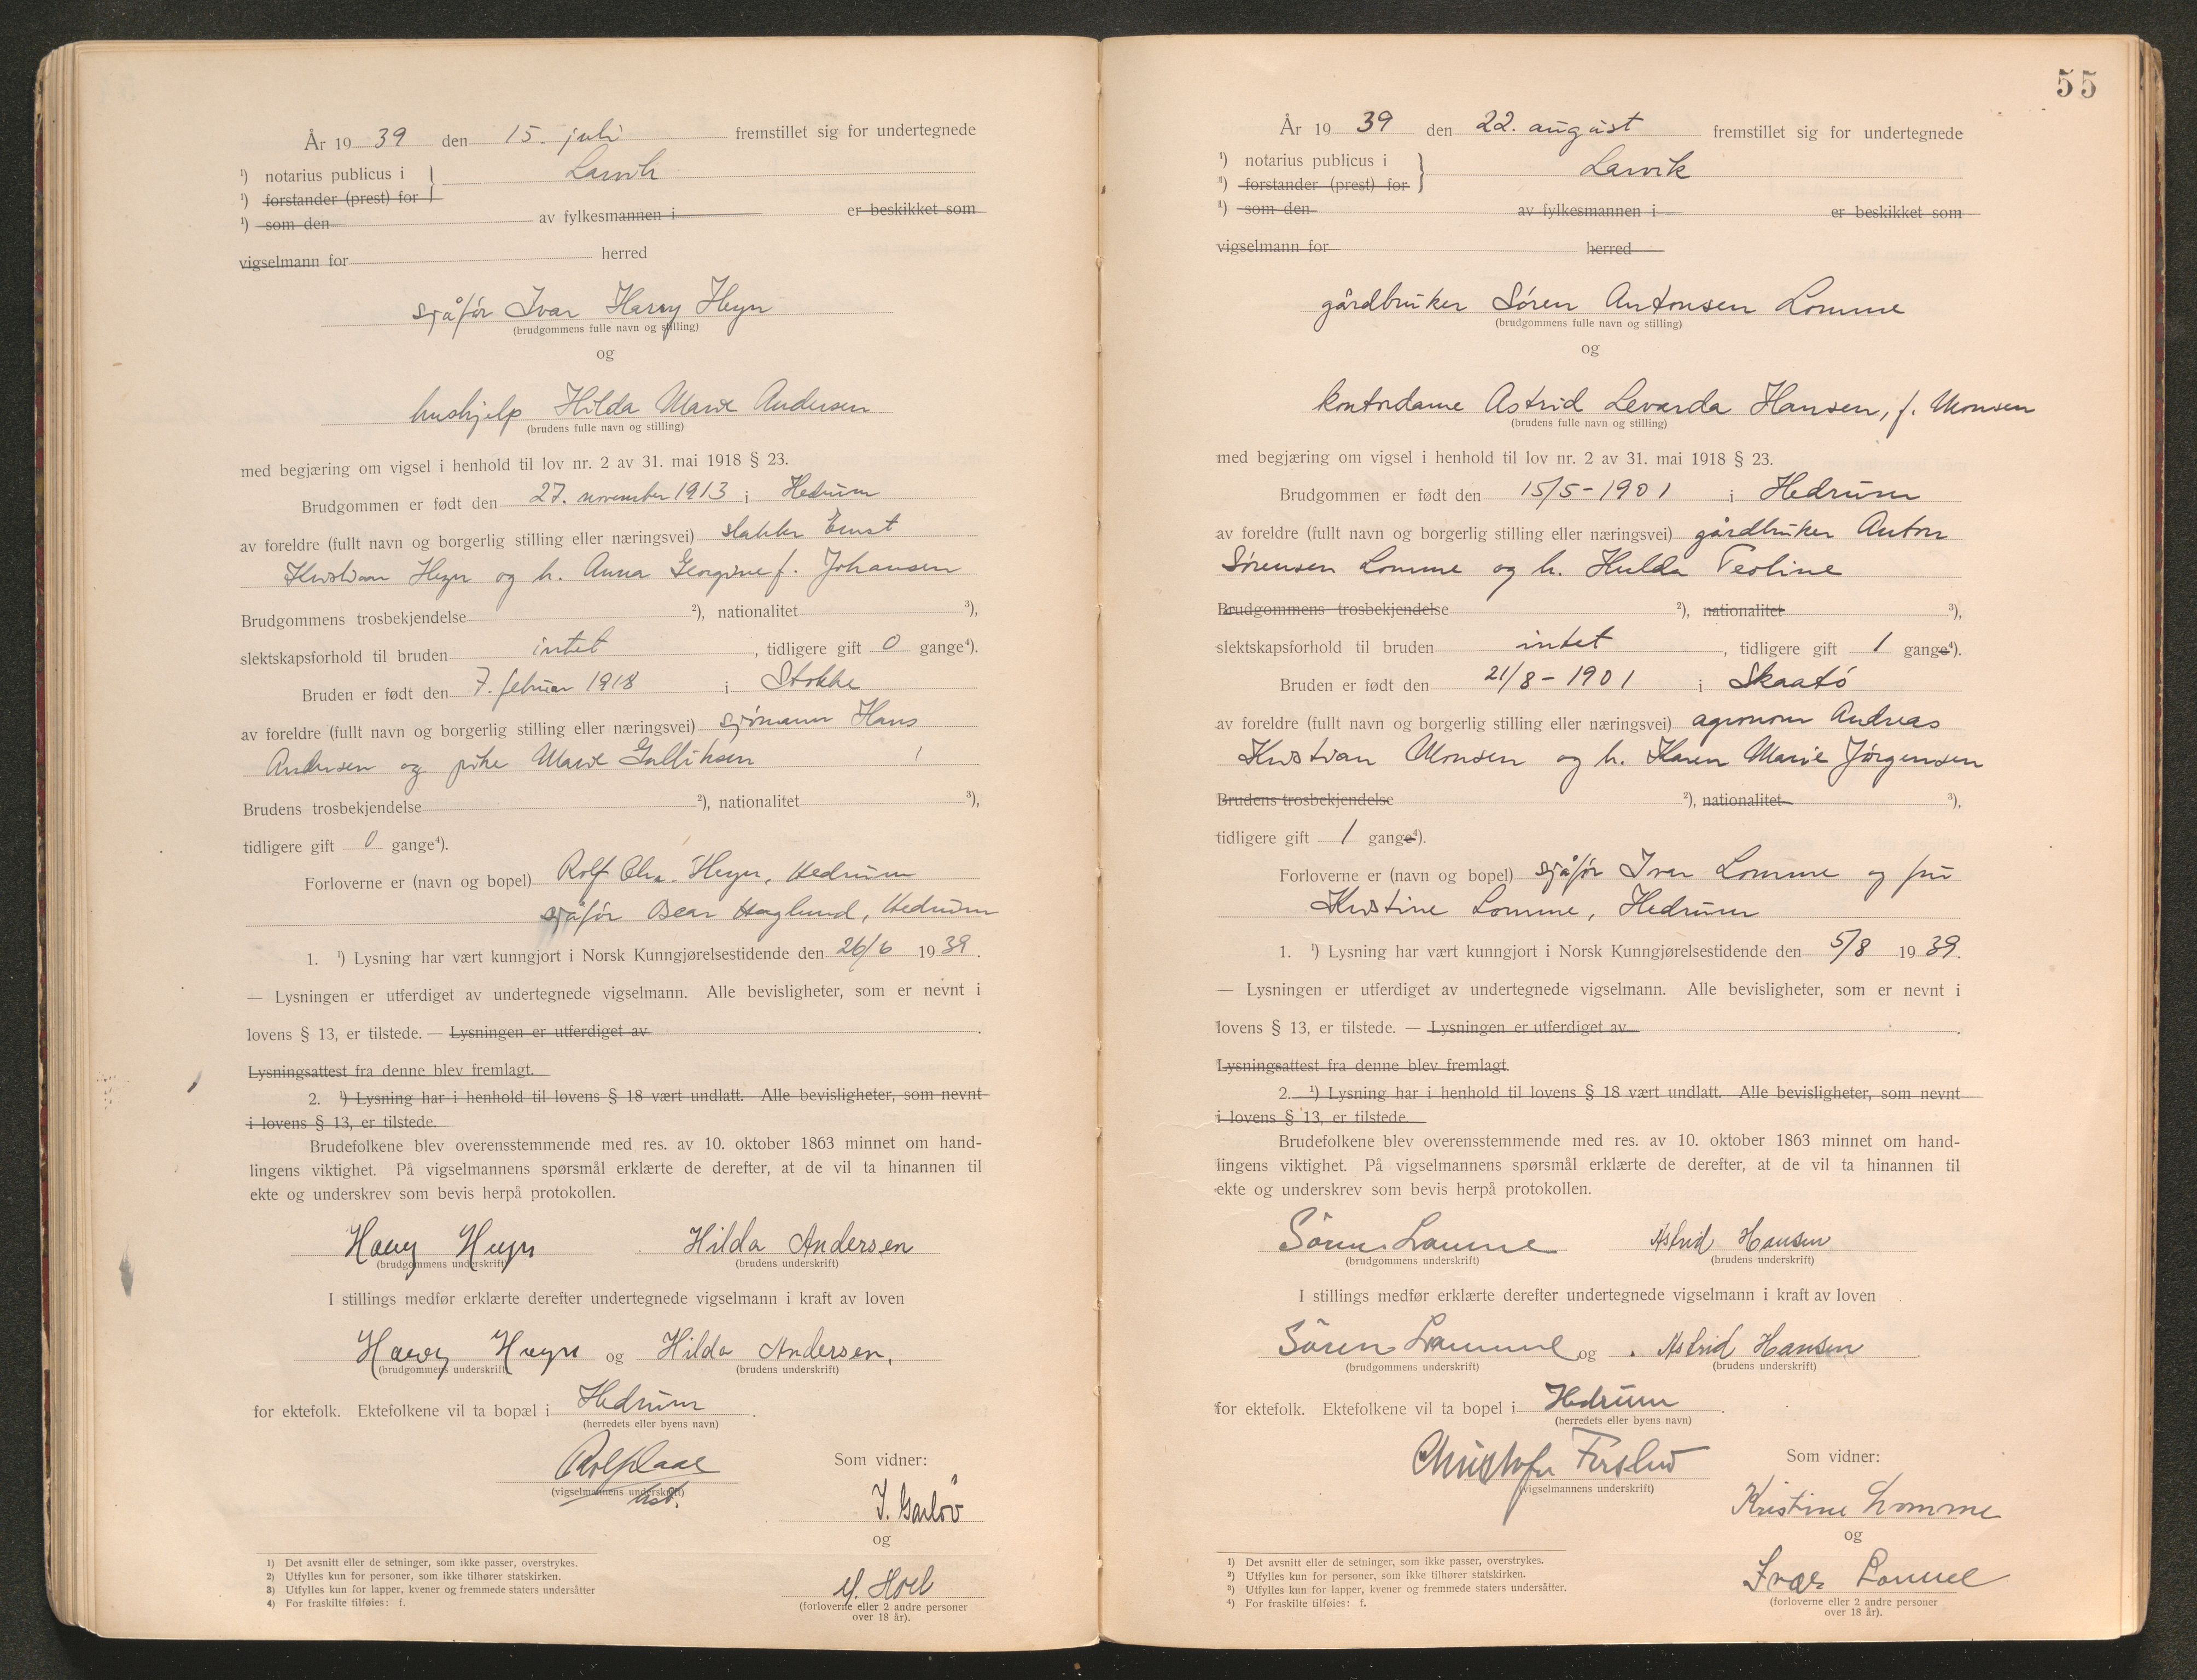 År 19 39 den 15. juli fremstillet sig for undertegnede
¹) notarius publicus i } Larvik
¹) forstander (prest) for
¹) som den av fylkesmannen i er beskikket som
vigselmann for herred
sjåfør Ivar Harry Heyn
(brudgommens fulle navn og stilling)
og
hushjelp Hilda Marie Andersen
(brudens fulle navn og stilling)
med begjæring om vigsel i henhold til lov nr. 2 av 31. mai 1918 § 23.
Brudgommen er født den 27. november 1913 i Hedrum
av foreldre (fullt navn og borgerlig stilling eller næringsvei) slakter Ernst
Kristian Heyn og h. Anna Georgine f. Johansen
Brudgommens trosbekjendelse ²), nationalitet ³),
slektskapsforhold til bruden intet , tidligere gift 0 gange⁴).
Bruden er født den 7. februar 1918 i Stokke
av foreldre (fullt navn og borgerlig stilling eller næringsvei) sjømann Hans
Andersen og pike Marie Gulliksen
Brudens trosbekjendelse ²), nationalitet ³),
tidligere gift 0 gange⁴).
Forloverne er (navn og bopel) Rolf Chr. Heyn, Hedrum
sjåfør Oscar Haglund, Hedrum
1. ¹) Lysning har vært kunngjort i Norsk Kunngjørelsestidende den 26/6 1939.
— Lysningen er utferdiget av undertegnede vigselmann. Alle bevisligheter, som er nevnt i
lovens § 13, er tilstede. — Lysningen er utferdiget av .
Lysningsattest fra denne blev fremlagt.
2. ¹) Lysning har i henhold til lovens § 18 vært undlatt. Alle bevisligheter, som nevnt
i lovens § 13, er tilstede.
Brudefolkene blev overensstemmende med res. av 10. oktober 1863 minnet om hand-
lingens viktighet. På vigselmannens spørsmål erklærte de derefter, at de vil ta hinannen til
ekte og underskrev som bevis herpå protokollen.
Harry Heyn Hilda Andersen
(brudgommens underskrift) (brudens underskrift)
I stillings medfør erklærte derefter undertegnede vigselmann i kraft av loven
Harry Heyn og Hilda Andersen,
(brudgommens underskrift) (brudens underskrift)
for ektefolk. Ektefolkene vil ta bopæl i Hedrum .
(herredets eller byens navn)
Som vidner:
(vigselmannens underskrift)
og
(forloverne eller 2 andre personer
over 18 år).
1) Det avsnitt eller de setninger, som ikke passer, overstrykes.
2) Utfylles kun for personer, som ikke tilhører statskirken.
3) Utfylles kun for lapper, kvener og fremmede staters undersåtter
4) For fraskilte tilføies: f.
55
År 19 39 den 22. august fremstillet sig for undertegnede
¹) notarius publicus i } Larvik
¹) forstander (prest) for
¹) som den av fylkesmannen i er beskikket som
vigselmann for herred
gårdbruker Søren Antonsen Lomme
(brudgommens fulle navn og stilling)
og
kontordame Astrid Levarda Hansen, f. Monsen
(brudens fulle navn og stilling)
med begjæring om vigsel i henhold til lov nr. 2 av 31. mai 1918 § 23.
Brudgommen er født den 15/5-1901 i Hedrum
av foreldre (fullt navn og borgerlig stilling eller næringsvei) gårdbruker Anton
Sørensen Lomme og h. Hulda Teoline
Brudgommens trosbekjendelse ²), nationalitet ³),
slektskapsforhold til bruden intet , tidligere gift 1 gange⁴).
Bruden er født den 21/8-1901 i Skaatø
av foreldre (fullt navn og borgerlig stilling eller næringsvei) agronom Andreas
Kristian Monsen og h. Karen Marie Jørgensen
Brudens trosbekjendelse ²), nationalitet ³),
tidligere gift 1 gange⁴).
Forloverne er (navn og bopel) sjåfør Iver Lomme og fru
Kristine Lomme, Hedrum
1. ¹) Lysning har vært kunngjort i Norsk Kunngjørelsestidende den 5/8 1939.
— Lysningen er utferdiget av undertegnede vigselmann. Alle bevisligheter, som er nevnt i
lovens § 13, er tilstede. — Lysningen er utferdiget av .
Lysningsattest fra denne blev fremlagt.
2. ¹) Lysning har i henhold til lovens § 18 vært undlatt. Alle bevisligheter, som nevnt
i lovens § 13, er tilstede.
Brudefolkene blev overensstemmende med res. av 10. oktober 1863 minnet om hand-
lingens viktighet. På vigselmannens spørsmål erklærte de derefter, at de vil ta hinannen til
ekte og underskrev som bevis herpå protokollen.
Søren Lomme Astrid Hansen
(brudgommens underskrift) (brudens underskrift)
I stillings medfør erklærte derefter undertegnede vigselmann i kraft av loven
Søren Lomme og Astrid Hansen
(brudgommens underskrift) (brudens underskrift)
for ektefolk. Ektefolkene vil ta bopel i Hedrum .
(herredets eller byens navn)
Som vidner:
(vigselmannens underskrift)
Kristine Lomme
og
Ivar Lomme
(forloverne eller 2 andre personer
over 18 år).
¹) Det avsnitt eller de setninger, som ikke passer, overstrykes.
²) Utfylles kun for personer, som ikke tilhører statskirken.
³) Utfylles kun for lapper, kvener og fremmede staters undersåtter.
⁴) For fraskilte tilføies: f.